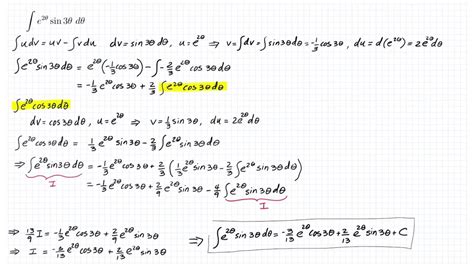 ∫ e^{2θ} sin 3θ dθ
∫udv = uv - ∫vdu   dv = sin3θdθ, u = e^{2θ} ⇒ v = ∫dv = ∫sin3θdθ = -1/3 cos3θ, du = d(e^{2θ}) = 2e^{2θ}dθ
∫e^{2θ}sin3θdθ = e^{2θ}(-1/3 cos3θ) - ∫-2/3 e^{2θ}cos3θdθ
= -1/3 e^{2θ}cos3θ + 2/3 ∫e^{2θ}cos3θdθ
∫e^{2θ}cos3θdθ
dv = cos3θdθ, u = e^{2θ} ⇒ v = 1/3 sin3θ, du = 2e^{2θ}dθ
∫e^{2θ}cos3θdθ = 1/3 e^{2θ}sin3θ - 2/3 ∫e^{2θ}sin3θdθ
⇒ ∫e^{2θ}sin3θdθ = -1/3 e^{2θ}cos3θ + 2/3 (1/3 e^{2θ}sin3θ - 2/3 ∫e^{2θ}sin3θdθ)
I = -1/3 e^{2θ}cos3θ + 2/9 e^{2θ}sin3θ - 4/9 ∫e^{2θ}sin3θdθ
I
⇒ 13/9 I = -1/3 e^{2θ}cos3θ + 2/9 e^{2θ}sin3θ
⇒ I = -3/13 e^{2θ}cos3θ + 2/13 e^{2θ}sin3θ ⇒ ∫e^{2θ}sin3θdθ = -3/13 e^{2θ}cos3θ + 2/13 e^{2θ}sin3θ + C